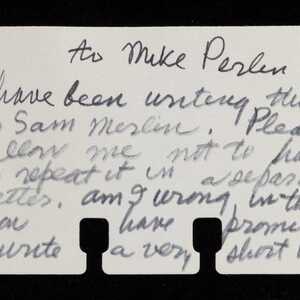 to Mike Perlin
have been writing thi
Sam Merlin. Plea
llow me not to ha
repeat it in a separ
etter. am I wrong, in th
ou have promi
write a very short